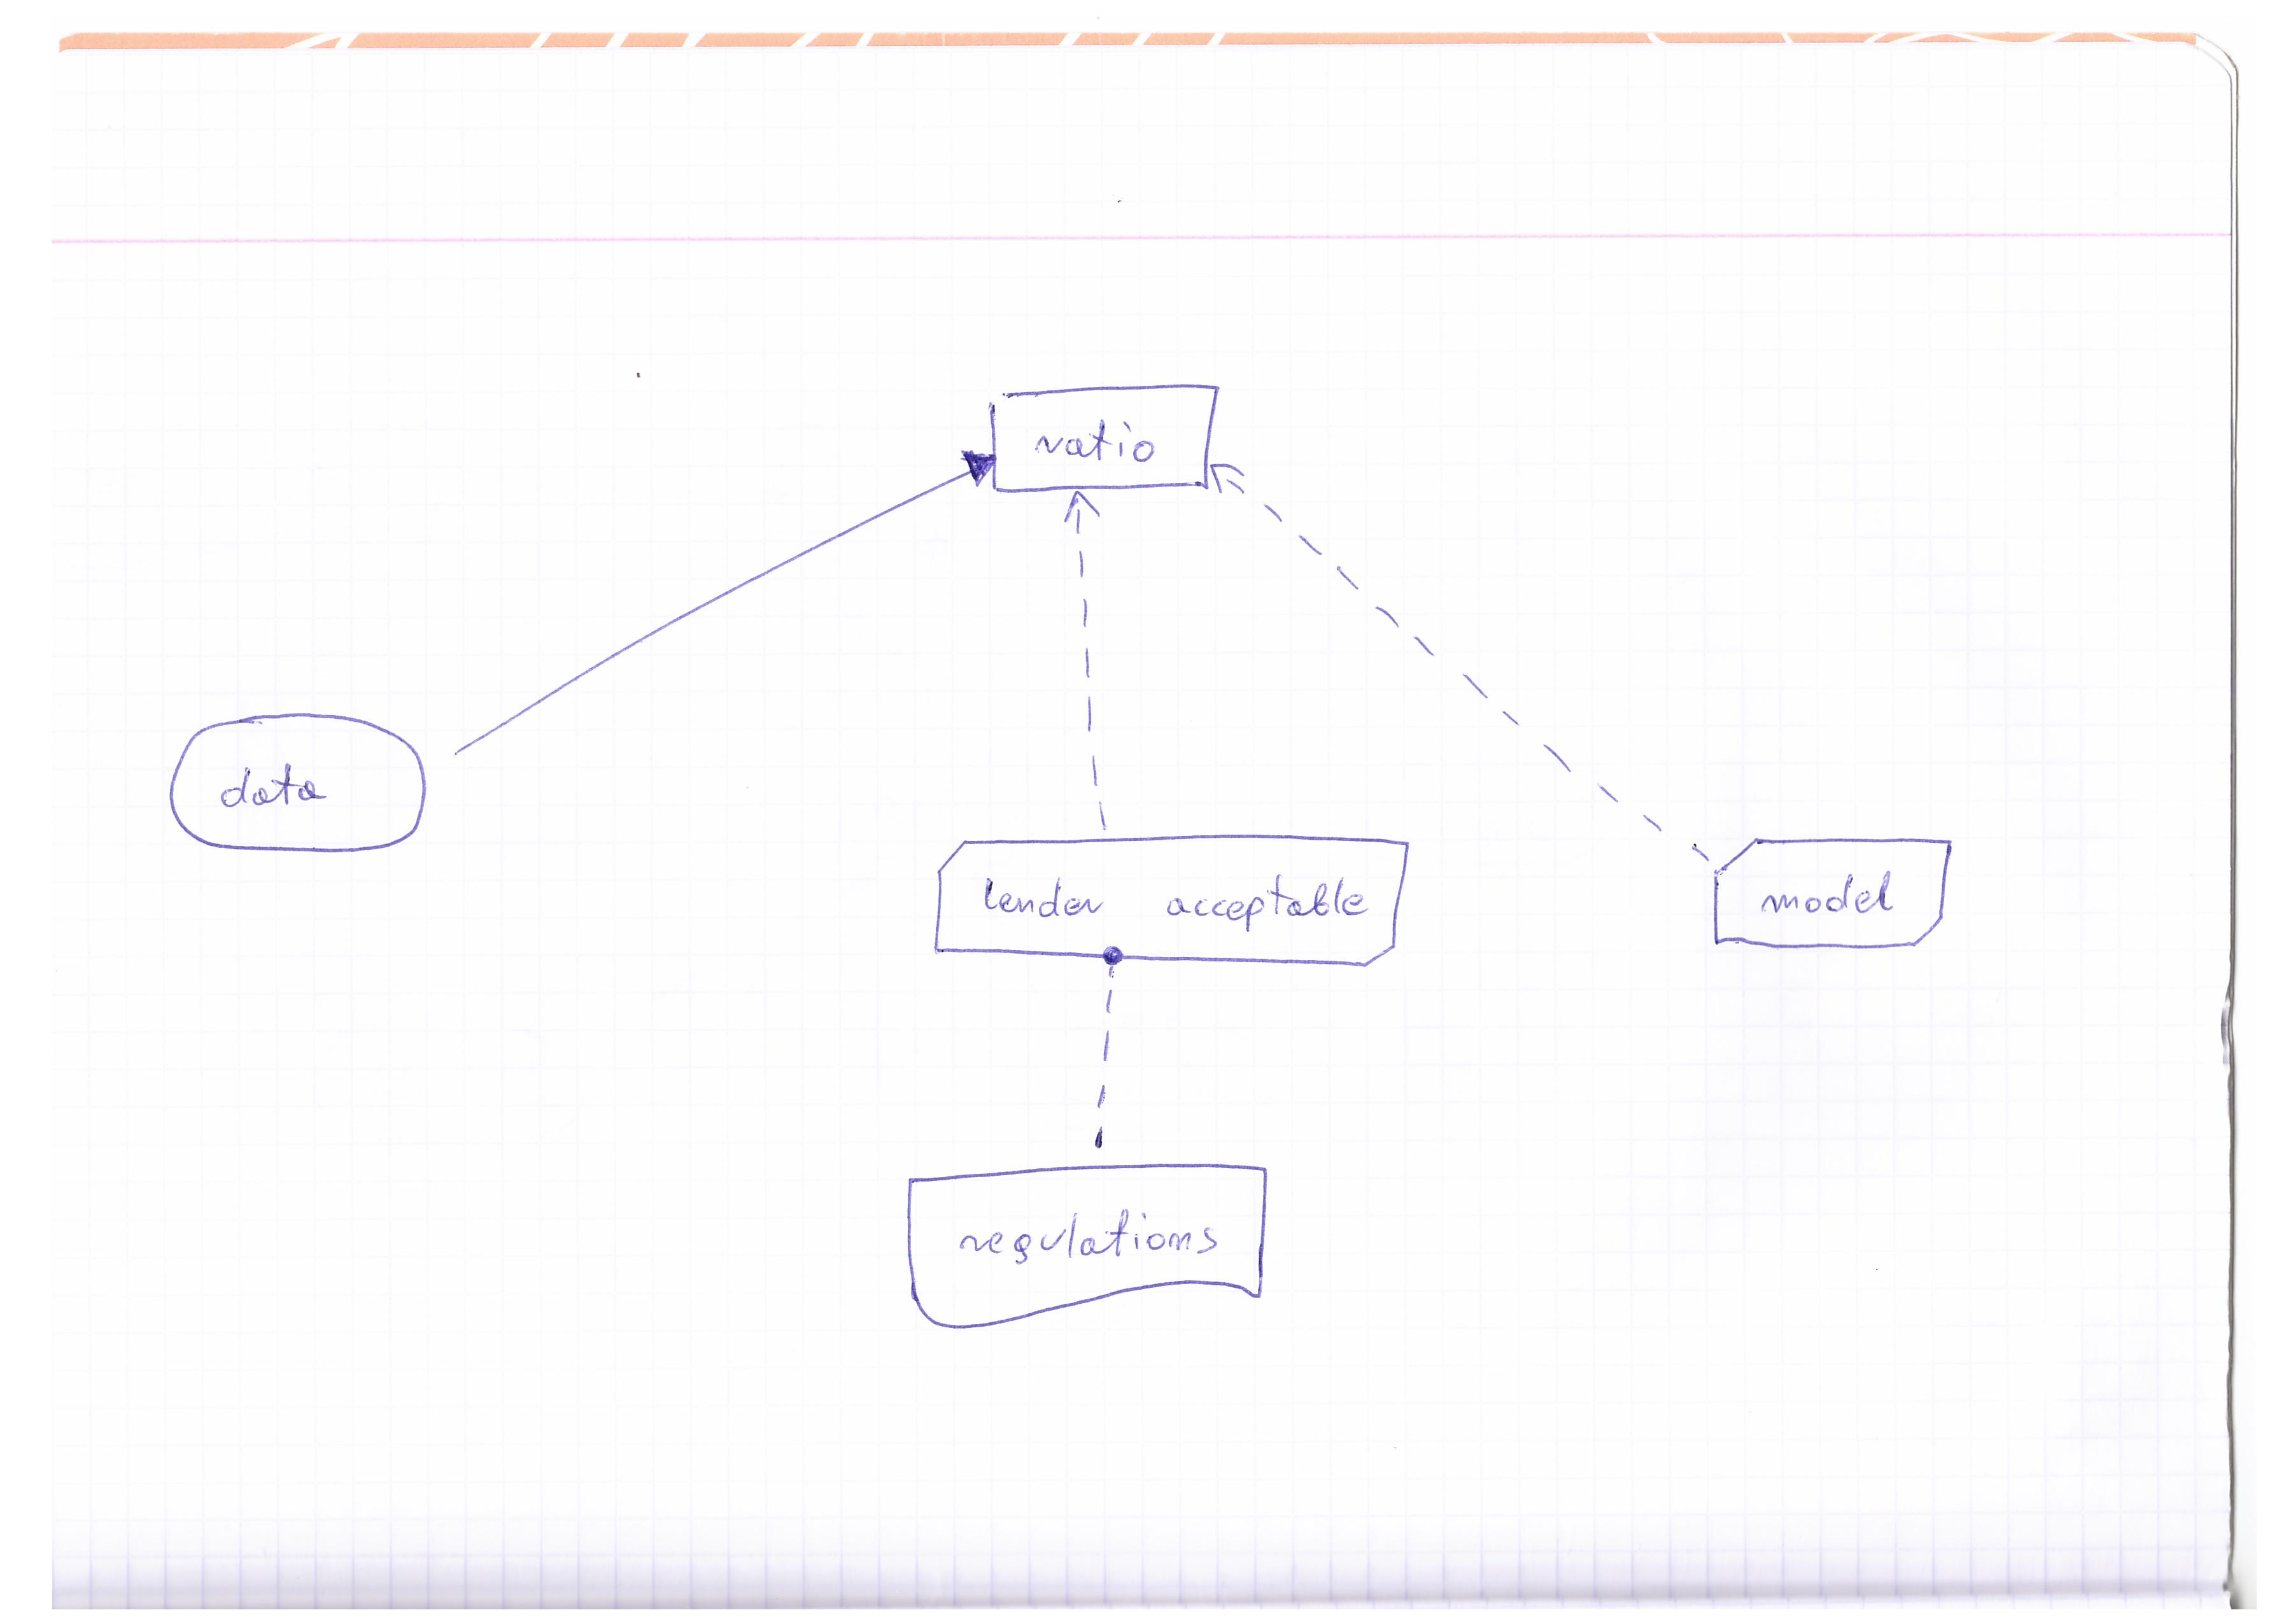 ratio
data
lender acceptable
model
regulations